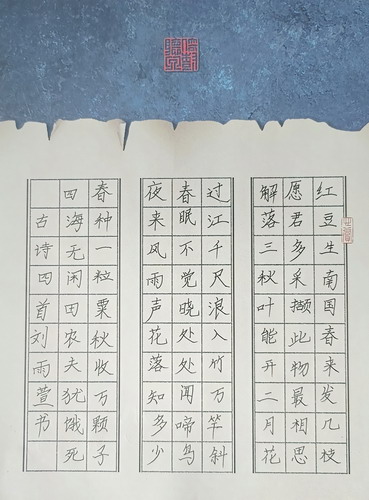 红豆生南国春来发几枝
愿君多采撷此物最相思
解落三秋叶能开二月花
过江千尺浪入竹万竿斜
春眠不觉晓处处闻啼鸟
夜来风雨声花落知多少
春种一粒粟秋收万颗子
四海无闲田农夫犹饿死
古诗四首刘雨萱书